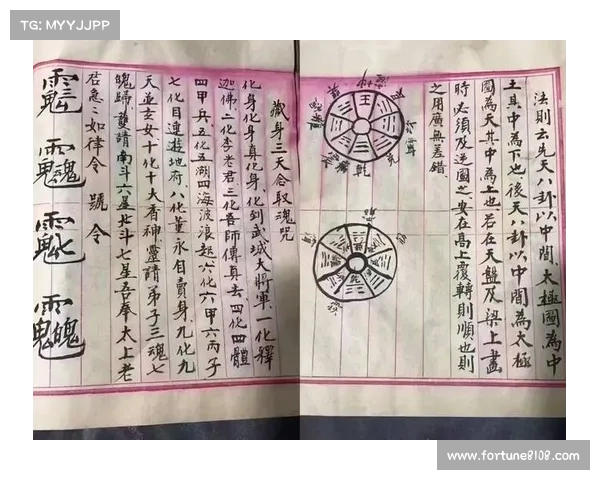 TG: MYYJJPP
法則云先天八卦以中間太極圖為中
土其中為下也後天八卦以中間為太極
圖為天其中為上也若在天盤及梁上畫
時必須及逆圖之安在高上覆轉則順也則
之用廣無差錯
王
乾
藏身三天合取魂咒
化身化身真化身化到武城大將軍一化釋
迦佛二化李老君三化吾師傳真去四化四體
四甲兵五化五湖四海波浪起六化六甲六丙子
七化目連遊地府八化董永自賣身九化九
天並玄女十化十大香神靈請弟子三魂七
魄歸雙請南斗六星北斗七星吾奉太上老
君急急如律令 號令
www.fortune8108.com